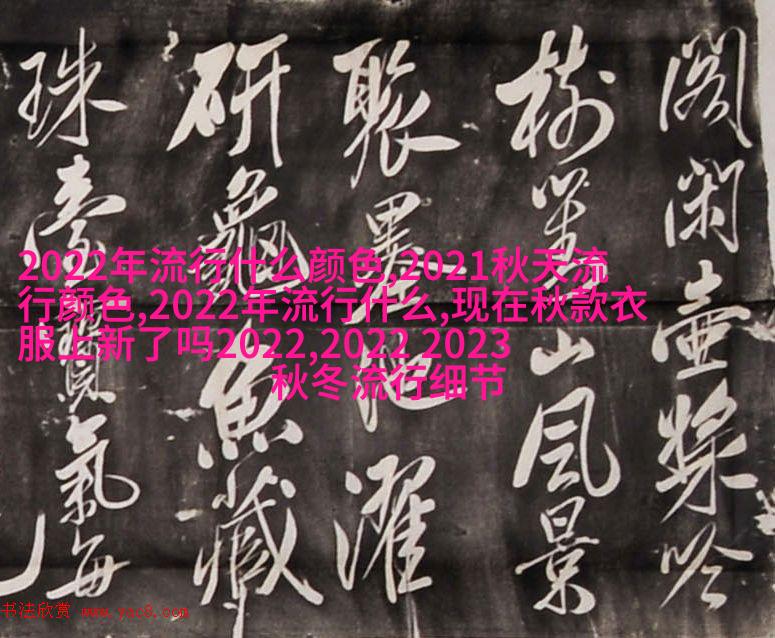 2022年流行什么颜色,2021秋天流
行颜色,2022年流行什么,现在秋款衣
服上新了吗2022,2022 2023
秋冬流行细节
閣閑壺吟
樹對山風景
聚墨池濯
研龜魚藏
珠臺寶氣每
书法欣赏 www.yac8.com